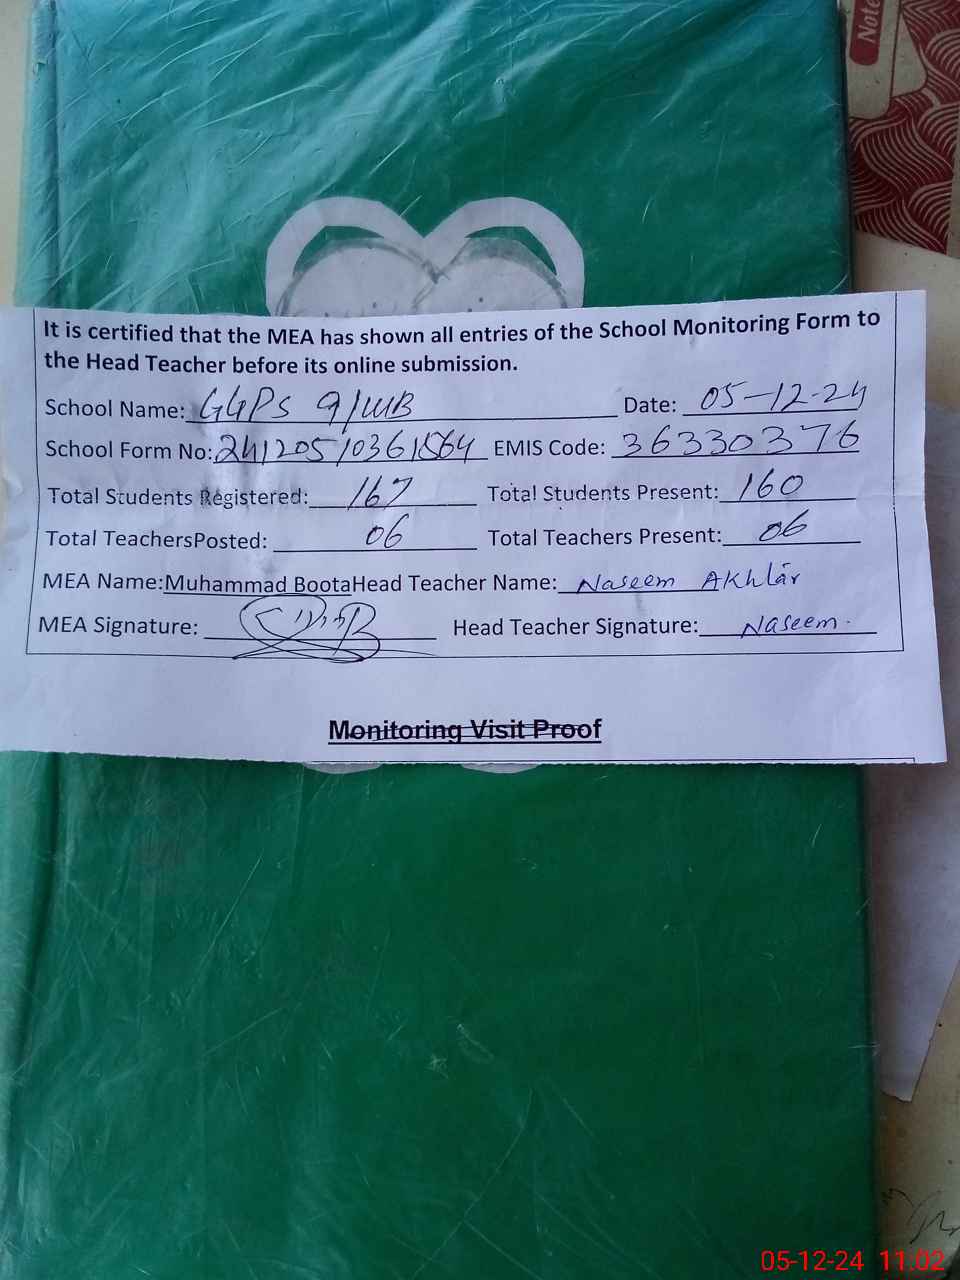 Note
It is certified that the MEA has shown all entries of the School Monitoring Form to
the Head Teacher before its online submission.
School Name: GGPS 9/WB Date: 05-12-24
School Form No: 24120510361564 EMIS Code: 36330376
Total Students Registered: 167 Total Students Present: 160
Total TeachersPosted: 06 Total Teachers Present: 06
MEA Name:Muhammad BootaHead Teacher Name: Naseem Akhtar
MEA Signature: Head Teacher Signature: Naseem.
Monitoring Visit Proof
05-12-24 11:02